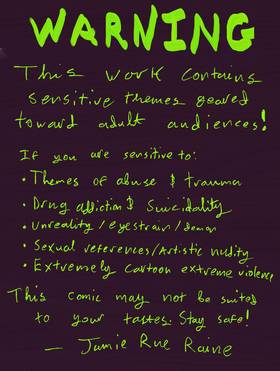 WARNING
This work contains
sensitive themes geared
toward adult audiences!
If you are sensitive to:
• Themes of abuse & trauma
• Drug addiction & Suicidality
• Unreality/eyestrain/demon
• Sexual references/Artistic nudity
• Extremely cartoon extreme violence
This comic may not be suited
to your tastes. Stay safe!
— Jamie Rue Raine